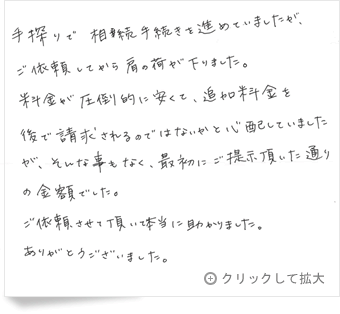 手探りで 相続手続きを進めていましたが、
ご依頼してから肩の荷が下りました。
料金が圧倒的に安くて、追加料金を
後で請求されるのではないかと心配していました
が、そんな事もなく、最初にご提示頂いた通り
の金額でした。
ご依頼させて頂いて本当に助かりました。
ありがとうございました。
クリックして拡大